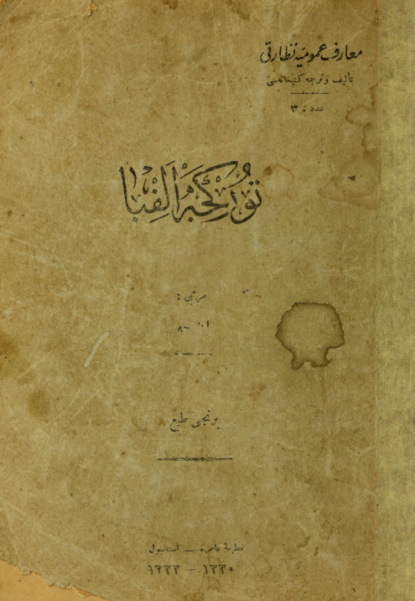 معارف عمومیه نظارتی
تألیف و ترجمه كتبخانه‌سی
عدد : ٣
توركجه الفبا
مرتبی :
برنجی طبع
مطبعهٔ عامره — استانبول
١٣٣٠ — ١٣٣٣